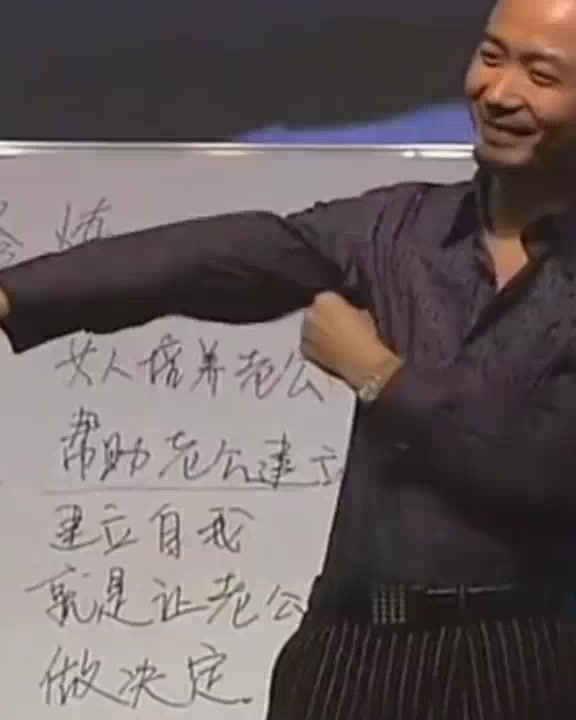 女人培养老公
帮助老公建立
建立自我
就是让老公
做决定。